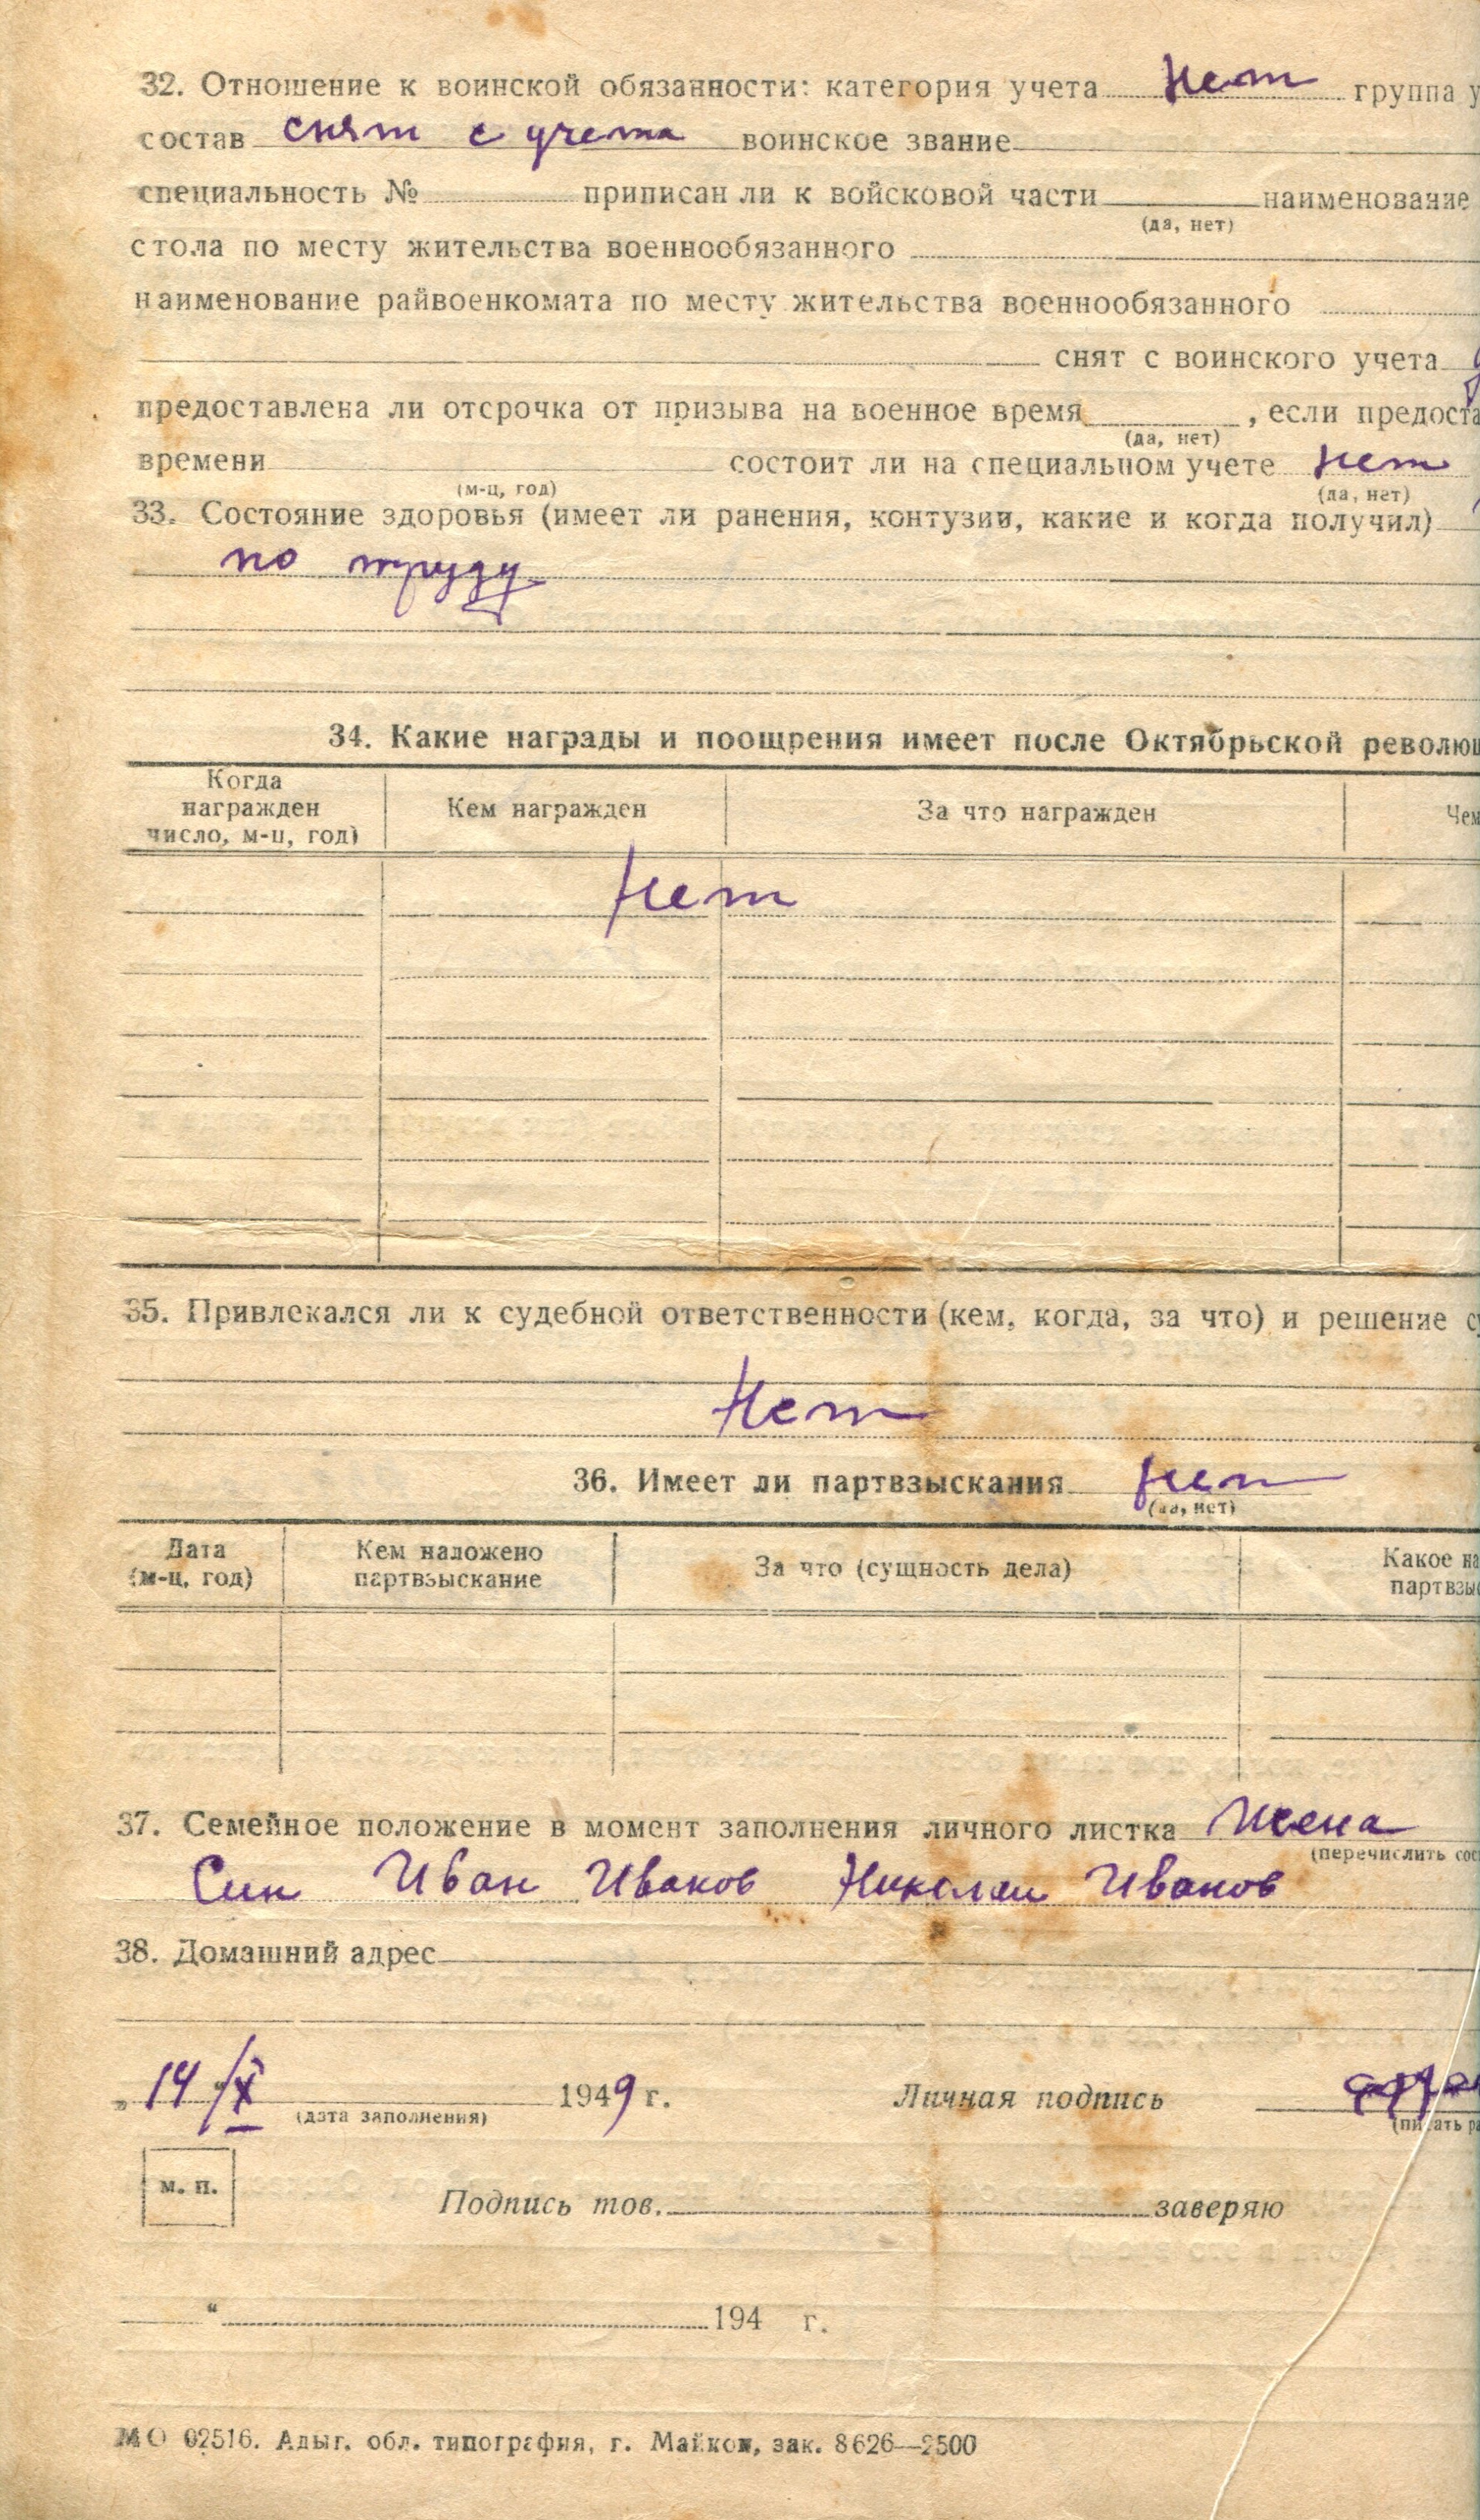 32. Отношение к воинской обязанности: категория учета Нет группа у
состав снят с учета воинское звание
специальность № приписан ли к войсковой части наименование
(да, нет)
стола по месту жительства военнообязанного
наименование райвоенкомата по месту жительства военнообязанного
снят с воинского учета
предоставлена ли отсрочка от призыва на военное время , если предоста
(да, нет)
времени состоит ли на специальном учете нет
(м-ц, год) (да, нет)
33. Состояние здоровья (имеет ли ранения, контузии, какие и когда получил)
по труду
34. Какие награды и поощрения имеет после Октябрьской революц
Когда награжден число, м-ц, год) Кем награжден За что награжден Чем
Нет
35. Привлекался ли к судебной ответственности (кем, когда, за что) и решение су
Нет
36. Имеет ли партвзыскания нет
(да, нет)
Дата (м-ц, год) Кем наложено партвзыскание За что (сущность дела) Какое на партвзыс
37. Семейное положение в момент заполнения личного листка Жена
(перечислить сос
Син Иван Иванов Николаи Иванов
38. Домашний адрес
„ 14/X 1949 г. Личная подпись
(дата заполнения) (писать ра
м. п.
Подпись тов. заверяю
“ 194 г.
МО 02516. Адыг. обл. типография, г. Майкоп, зак. 8626—2500